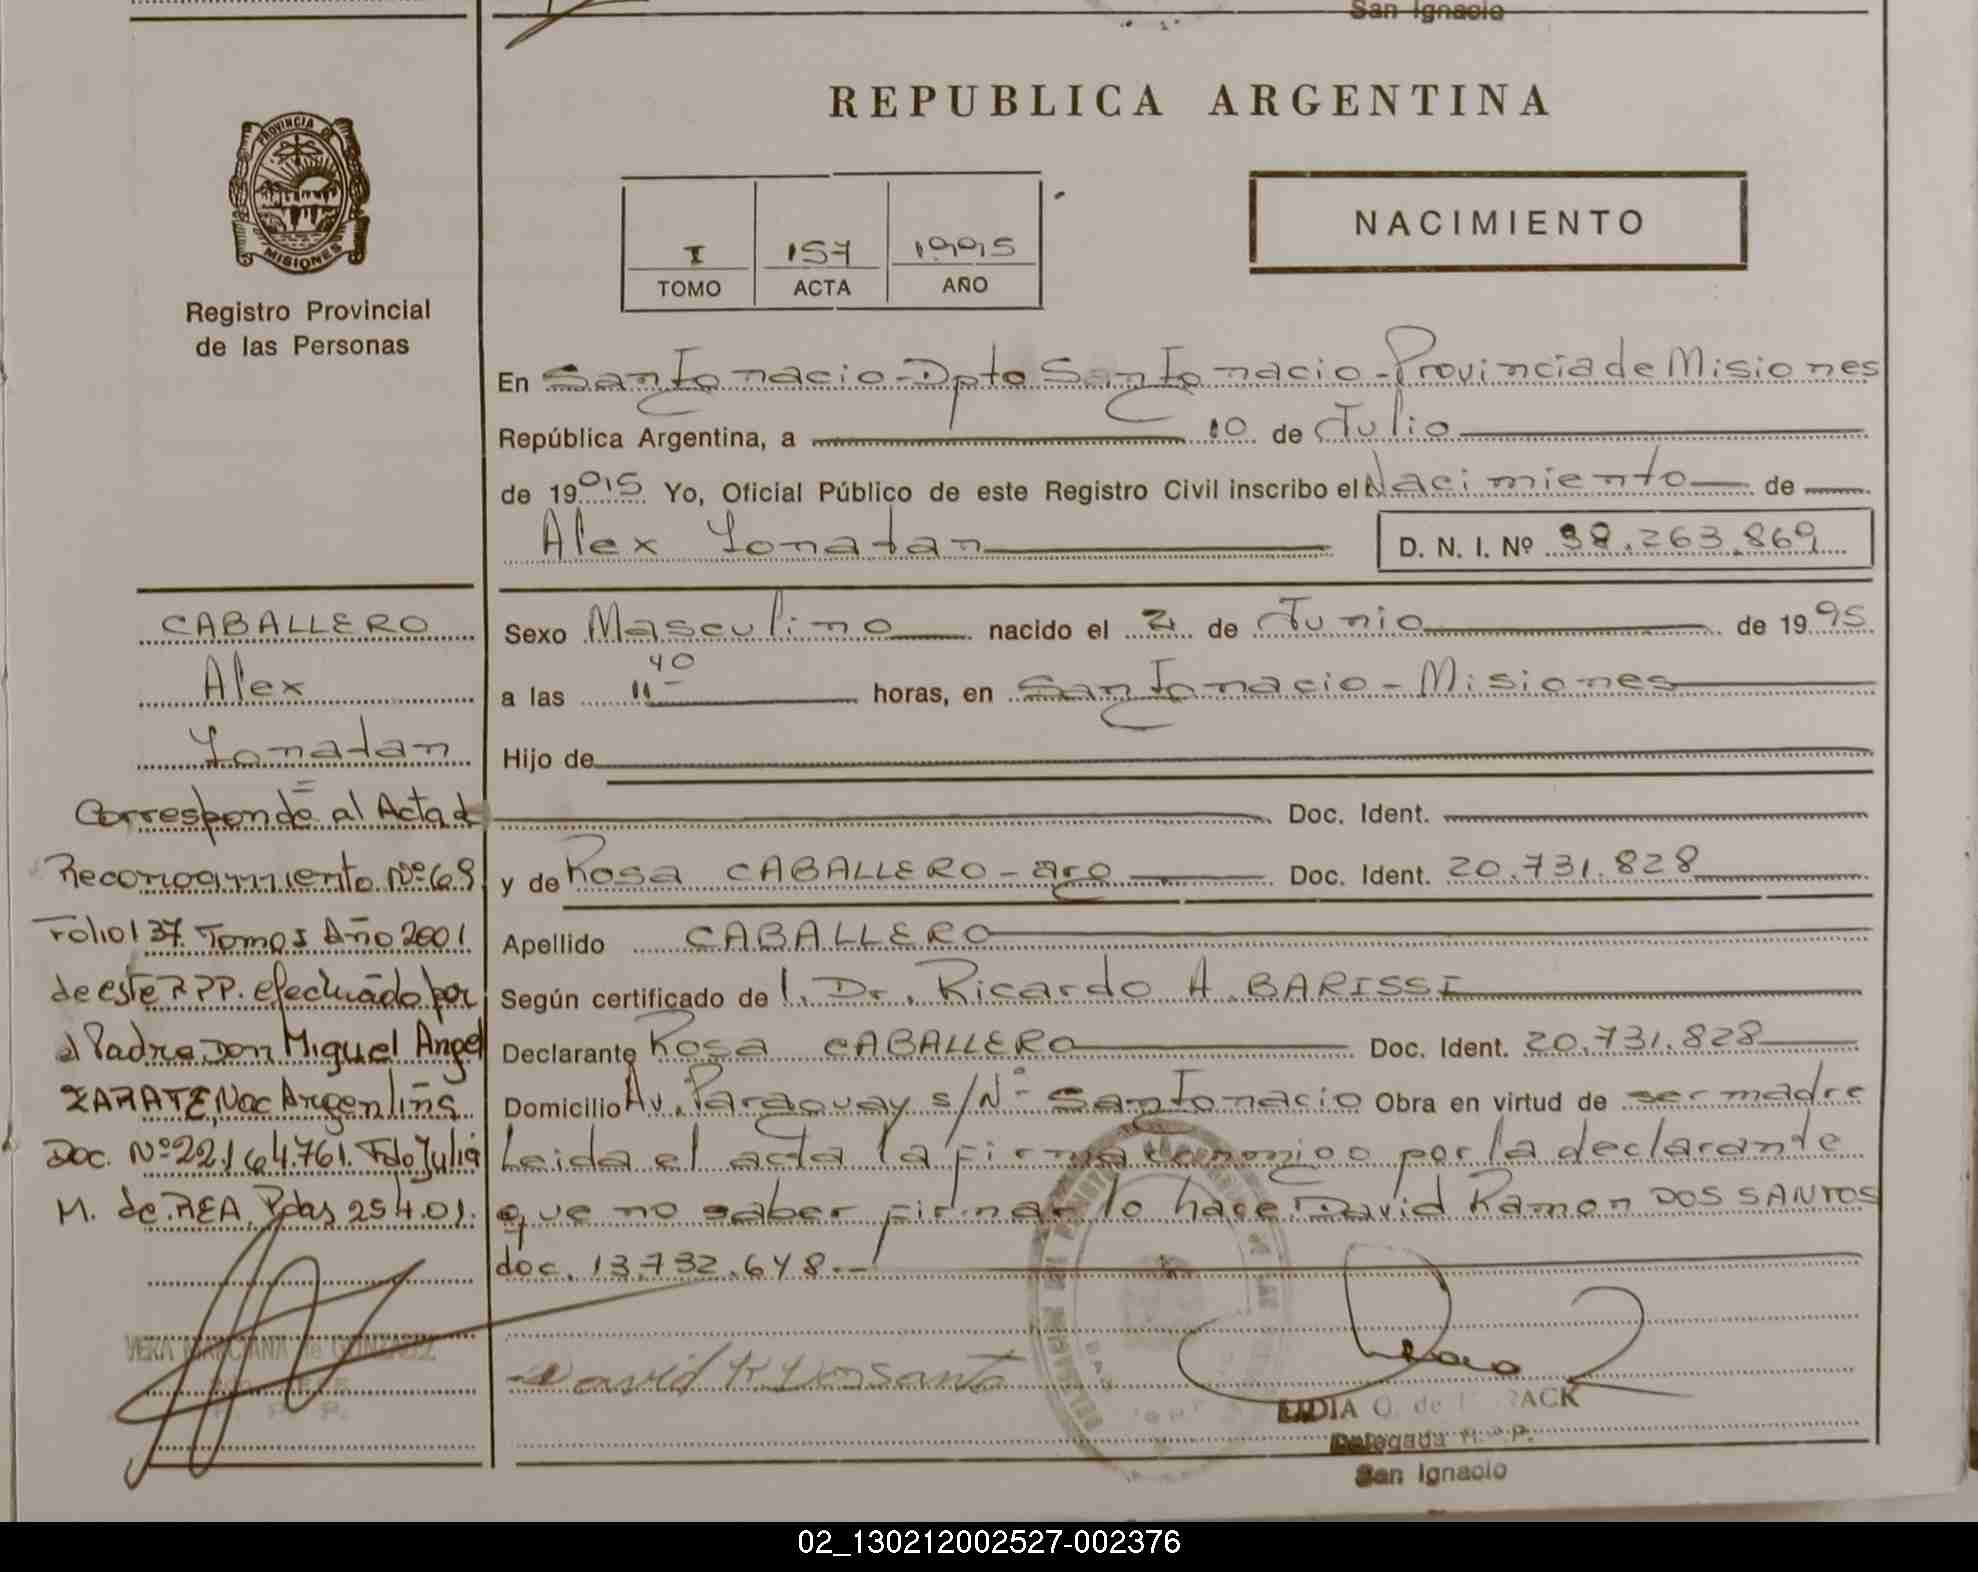 San Ignacio
REPUBLICA ARGENTINA
PROVINCIA DE
MISIONES
Registro Provincial
de las Personas
I 157 1995
TOMO ACTA AÑO
NACIMIENTO
En San Ignacio - Dpto San Ignacio - Provincia de Misiones
República Argentina, a 10 de Julio
de 1995 Yo, Oficial Público de este Registro Civil inscribo el Nacimiento de
Alex Yonatan
D. N. I. Nº 38.263.869
CABALLERO
Alex
Yonatan
Corresponde al Acta d
Reconocimiento Nº 68
Folio 137 Tomo I Año 2001
de este R.P.P. efectuado por
el Padre Don Miguel Angel
ZARATE, Nac Argentina
Doc. Nº 22.164.761. Fdo Julia
M. de REA. Pdas 25.4.01.
VERA MARCIANA de GONZALEZ
R. P. P.
Sexo Masculino nacido el 2 de Junio de 1995
a las 11 40 horas, en San Ignacio - Misiones
Hijo de
Doc. Ident.
y de Rosa CABALLERO - arg Doc. Ident. 20.731.828
Apellido CABALLERO
Según certificado de l. Dr. Ricardo A. BARISSI
Declarante Rosa CABALLERO Doc. Ident. 20.731.828
Domicilio Av. Paraguay s/Nº San Ignacio Obra en virtud de ser madre
Leida el acta la firma conmigo por la declarante
que no saber firmar lo hace David Ramon DOS SANTOS
doc. 13.732.648.-
David R Dos Santo
LIDIA O. de
Delegada R.P.P.
San Ignacio
02_130212002527-002376